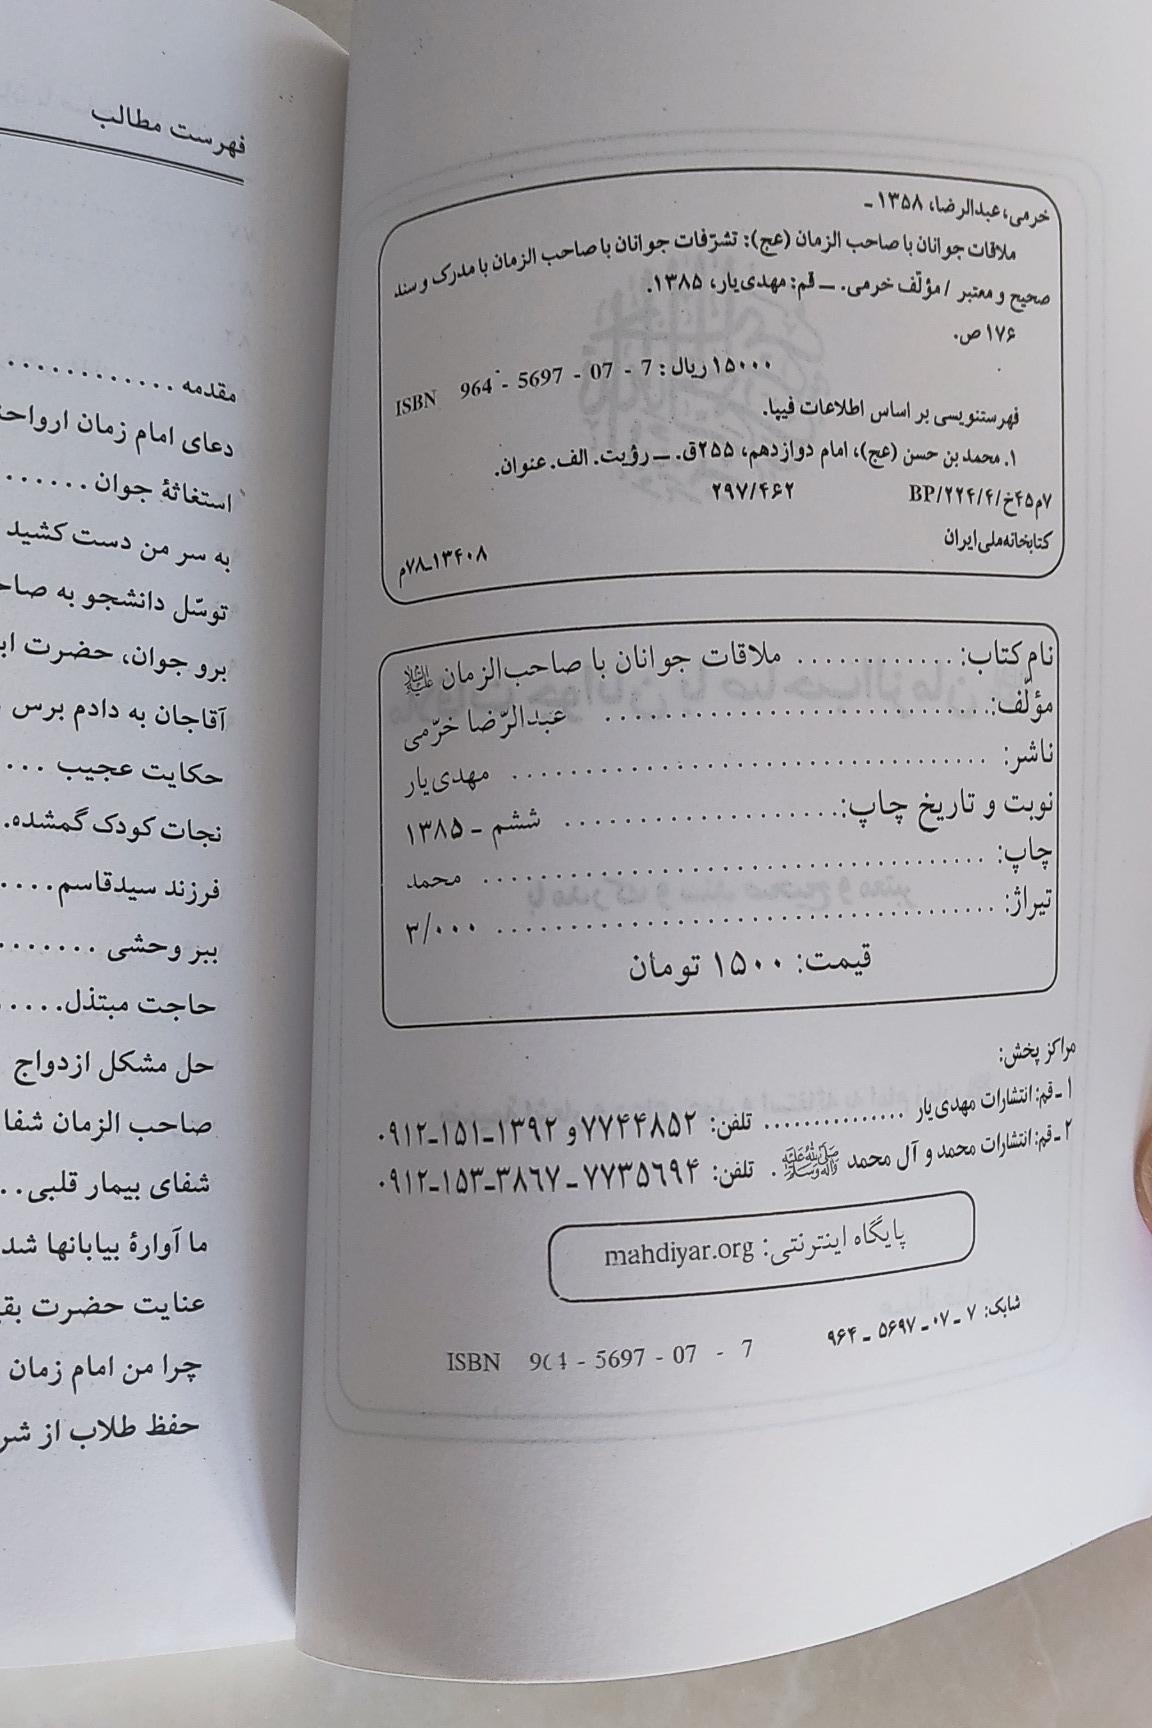 خرمی، عبدالرضا، ۱۳۵۸ ـ
ملاقات جوانان با صاحب الزمان (عج): تشرّفات جوانان با صاحب الزمان با مدرک و سند
صحیح و معتبر / مؤلّف خرمی. ــ قم: مهدی‌یار، ۱۳۸۵.
۱۷۶ ص.
۱۵۰۰۰ ریال: ISBN 964 - 5697 - 07 - 7
فهرستنویسی بر اساس اطلاعات فیپا.
۱. محمد بن حسن (عج)، امام دوازدهم، ۲۵۵ق. ــ رؤیت. الف. عنوان.
۷م۴۵خ/۲۲۴/۴/BP ۲۹۷/۴۶۲
کتابخانه ملی ایران ۱۳۴۰۸ـ۷۸م
نام کتاب: ............ ملاقات جوانان با صاحب‌الزمان علیه‌السلام
مؤلّف: .............................. عبدالرّضا خرّمی
ناشر: ................................. مهدی‌یار
نوبت و تاریخ چاپ: ................... ششم ـ ۱۳۸۵
چاپ: ................................... محمد
تیراژ: ................................... ۳/۰۰۰
قیمت: ۱۵۰۰ تومان
مراکز پخش:
۱ ـ قم: انتشارات مهدی‌یار .............. تلفن: ۷۷۴۴۸۵۲ و ۱۳۹۲ـ۱۵۱ـ۰۹۱۲
۲ ـ قم: انتشارات محمد و آل محمد ﷺ . تلفن: ۷۷۳۵۶۹۴ ـ ۳۸۶۷ـ۱۵۳ـ۰۹۱۲
پایگاه اینترنتی: mahdiyar.org
شابک: ۷ ـ ۰۷ ـ ۵۶۹۷ ـ ۹۶۴
ISBN 964 - 5697 - 07 - 7
فهرست مطالب
مقدمه ............
دعای امام زمان
استغاثهٔ جوان ......
به سر من دست کشید
توسّل دانشجو به
برو جوان، حضرت
آقاجان به دادم برس
حکایت عجیب ...
نجات کودک گمشده.
فرزند سیدقاسم....
ببر وحشی .......
حاجت مبتذل.....
حل مشکل ازدواج
صاحب الزمان شفا
شفای بیمار قلبی..
ما آوارهٔ بیابانها
عنایت حضرت
چرا من امام زمان
حفظ طلاب از